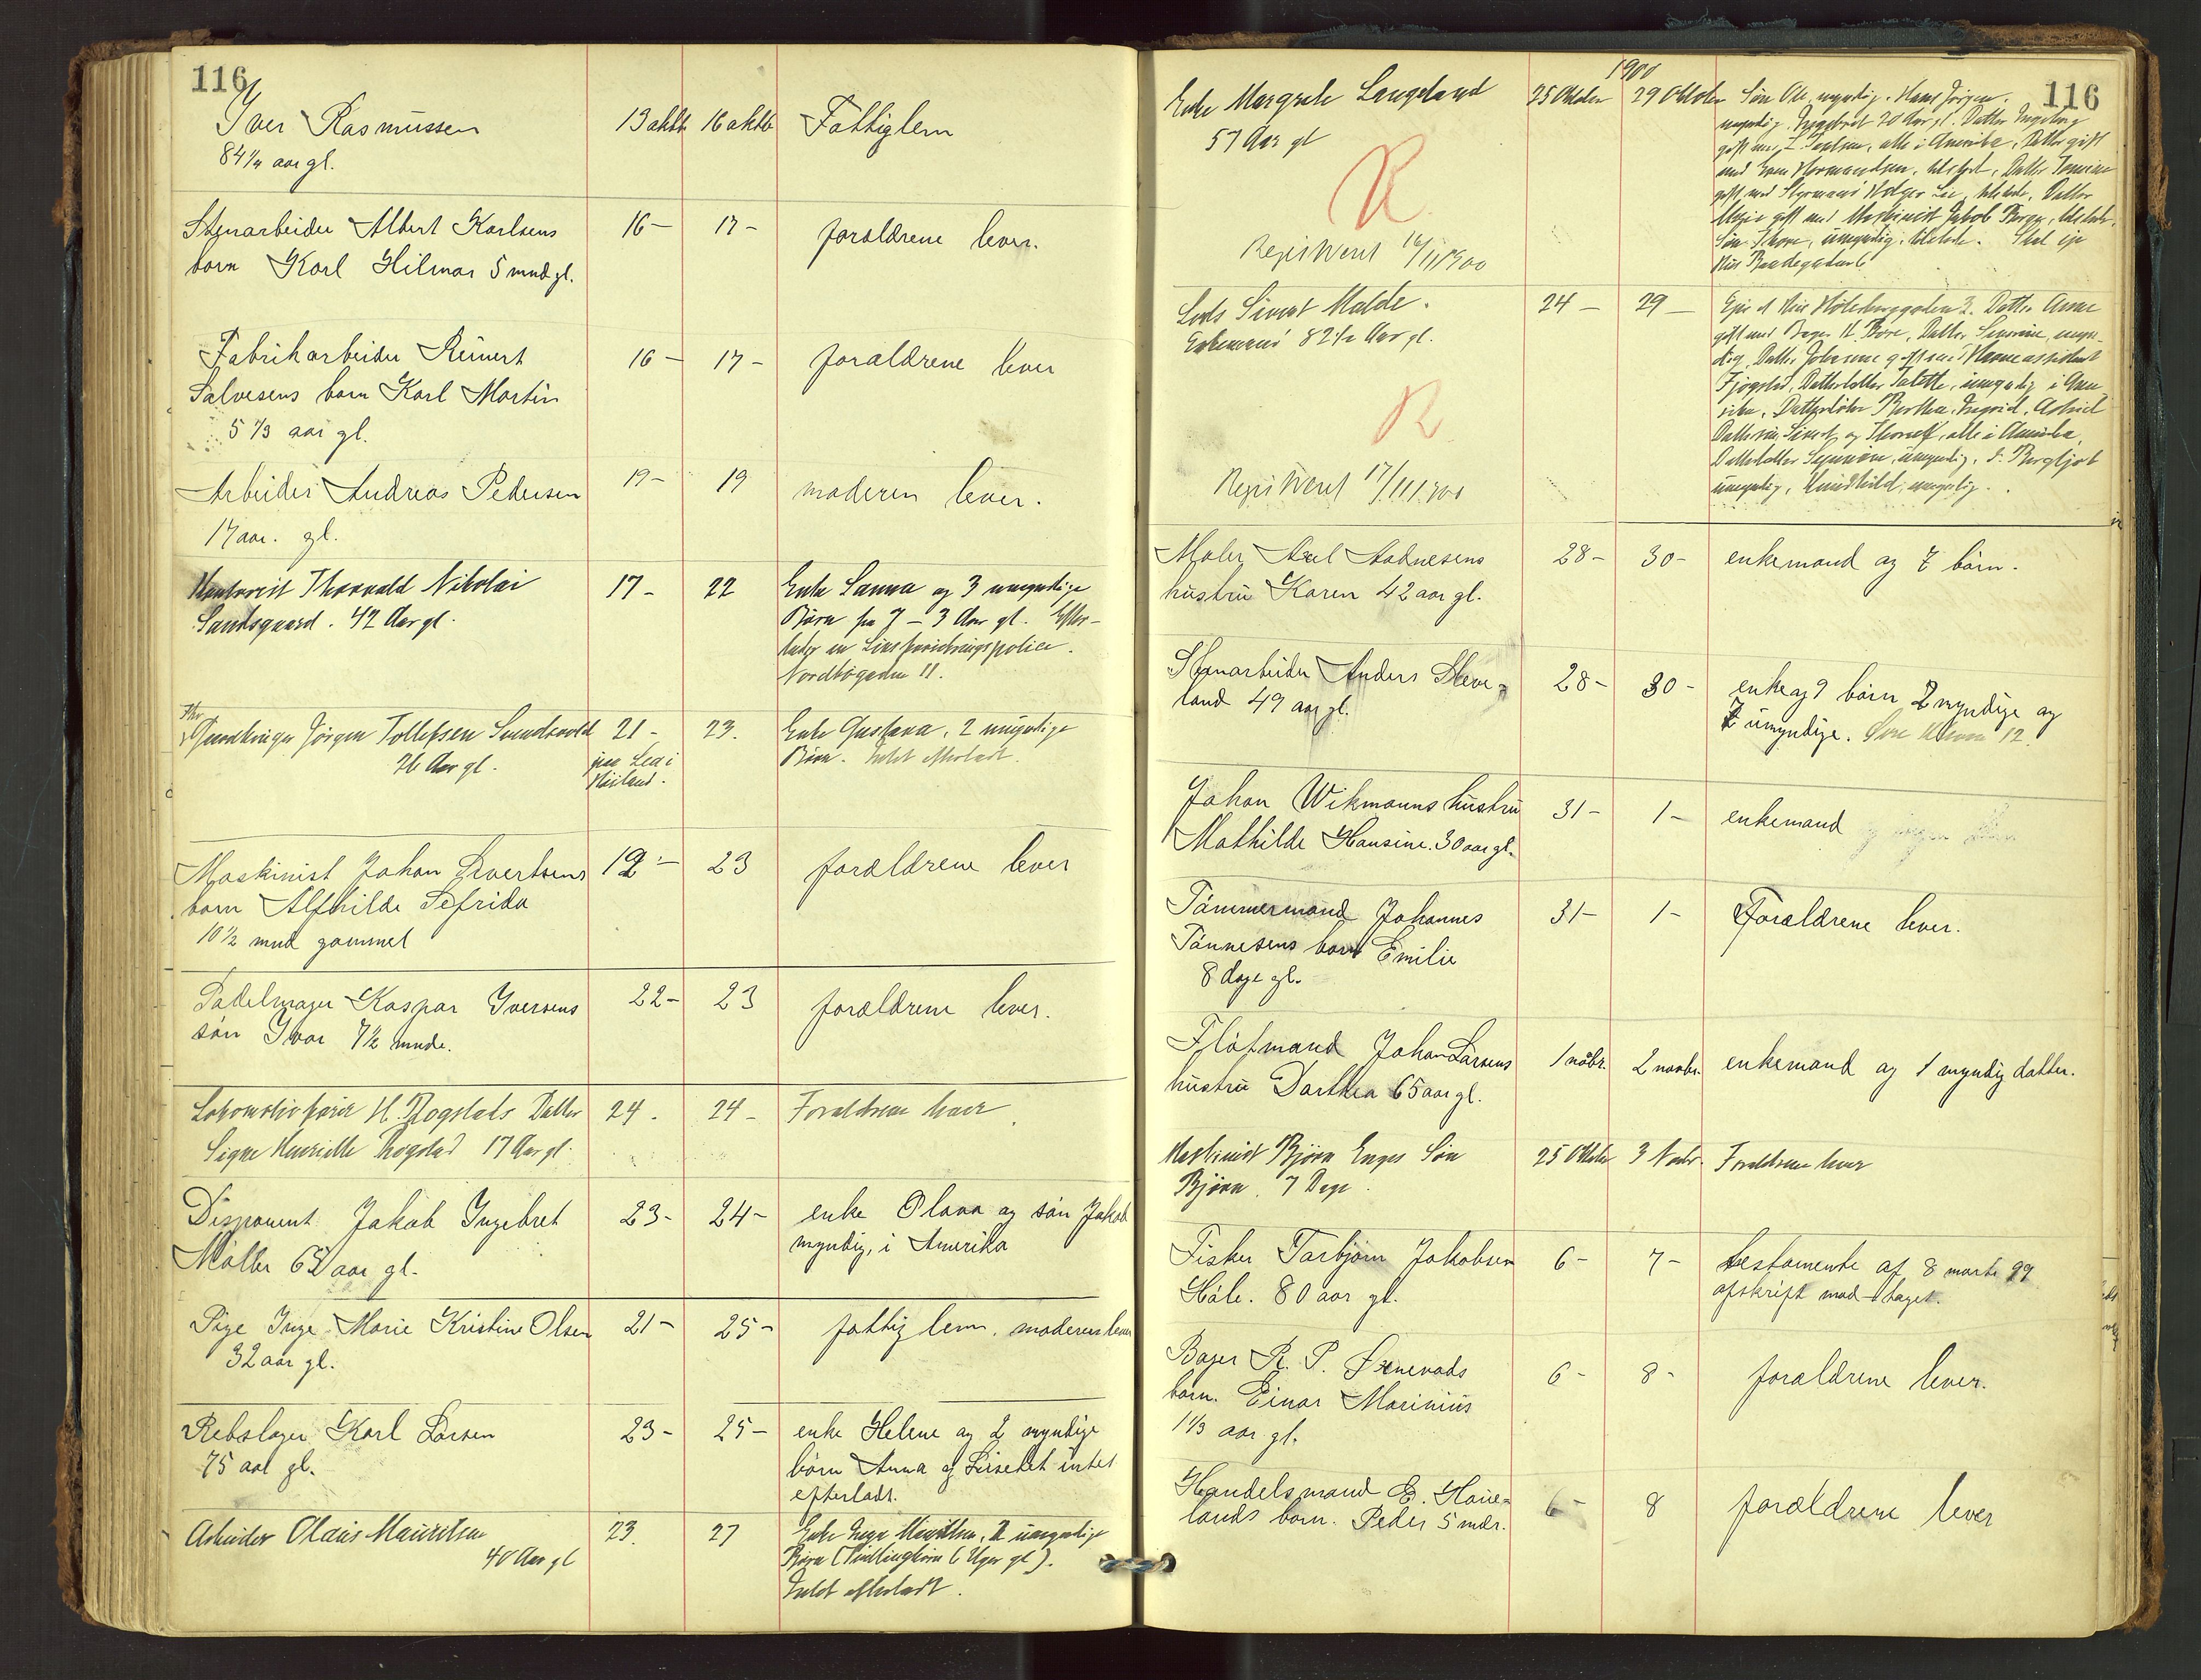 116
Iver Rasmussen 13 oktb 16 oktb Fattiglem
84 1/4 aar gl.
Stenarbeider Albert Karlsens 16 - 17 - forældrene lever.
barn Karl Hilmar 5 mnd gl.
Fabrikarbeider Reinert 16 - 17 - forældrene lever
Salvesens barn Karl Martin
5 1/3 aar gl.
Arbeider Andreas Pedersen 19 - 19 moderen lever.
17 aar. gl.
Kontorist Thorvald Nikolai 17 - 22 Enke Sanna og 3 umyndige
Sandsgaard. 42 Aar gl. Børn fra 7 - 3 Aar gl. Efter-
lader en Livsforsikringspolice.
Nordbøgaden 11.
Fhv
Gaardbruger Jørgen Tollefsen Sundsvold 21 - 23. Enke Gustava, 2 myndige
76 Aar gl. paa Lea i Børn. Intet efterladt.
Høiland.
Maskinist Johan Sivertsens 19 - 23 forældrene lever
barn Alfhilde Sefrida
10 1/2 mnd gammel
Sadelmager Kaspar Iversens 22 - 23 forældrene lever.
søn Ivar 7 1/2 mnde.
Lokomotivfører H. Rogstads Datter 24. 24 - Forældrene lever.
Signe Henriette Rogstad 17 Aar gl.
Disponent Jakob Ingebret 23 - 24 - enke Olava og søn Jakob
Møller 65 aar gl. myndig, i Amerika
Pige Inge Marie Kristine Olsen 21 - 25 - fattiglem. moderen lever
32 aar gl.
Rebslager Karl Larsen 23 - 25 - enke Helene og 2 myndige
75 aar gl. børn Anna og Lisebet intet
efterladt.
Arbeider Olaus Mauritsen 23. 27 Enke Inger Mauritsen, 2 umyndige
40 Aar gl Børn (Tvillingbørn 6 Uger gl).
Intet efterladt.
1900
116
Enke Margrete Langeland 25 Oktober 29 Oktober Søn Ole, myndig. Hans Jørgen.
57 Aar gl myndig. Ingebret 20 Aar gl. Datter Ingeborg
gift med alle i Amerika, Datter gift
med Sven tilstede, Datter
gift med Styrmand Holger Lie, tilstede, Datter
gift med Maskinist Jakob tilstede.
R
Registreret 16/11 1900 Søn umyndig, tilstede. Skal eje
Hus
Lods Sivert Malde. 24 - 29 - Ejer et Hus Datter Anne
Enkemand 82 1/2 Aar gl. gift med Datter myn-
dig, Datter Johanne gift med Havneassistent
Fjogstad, Datterdatter umyndig i Ame
rika, Datterdøtre Bertha, Ingrid, Astrid
R
Dattersøn Sivert og Thorolf, alle i Amerika,
Datterdatter umyndig, d: Bergljot
Registreret 17/11 1900 umyndig, umyndig.
Maler Axel Aadnesens 28 - 30 - enkemand og 7 børn.
hustru Karen 42 aar gl.
Stenarbeider Anders Steve- 28 - 30 - enke og 9 børn 2 myndige og
land 49 aar gl. 7 umyndige. 12.
Johan Wikmanns hustru 31 - 1 - enkemand
Mathilde Hansine. 30 aar gl.
Tømmermand Johannes 31 - 1 - Forældrene lever.
Tønnesens barn Emilie
8 dage gl.
Fløtmand Johan Larsens 1 nobr. 2 novbr. enkemand og 1 myndig datter.
hustru Dorthea 65 aar gl.
Maskinist Bjørn Enges Søn 25 Oktober 3 Novbr. Forældrene lever
Bjørn. 7 Dage.
Fisker Torbjørn Jakobsen 6 - 7 - testamente af 8 marts 99
Håle. 80 aar gl. afskrift modtaget.
Bager R. P. 6 - 8 - forældrene lever.
barn. Einar Marinius
1 1/3 aar gl.
Handelsmand E. Haue- 6 - 8 forældrene lever
lands barn. Peder 5 mdr.